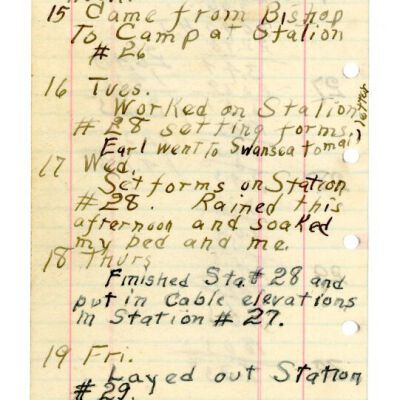 15 Came from Bishop
To Camp at Station
# 26
16 Tues.
Worked on Station
# 28 setting forms.
Earl went To Swansea to mail
letter
17 Wed.
Set forms on Station
# 28. Rained this
afternoon and soaked
my bed and me.
18 Thurs
Finished Stat 28 and
put in Cable elevations
in Station # 27.
19 Fri.
Layed out Station
# 29.